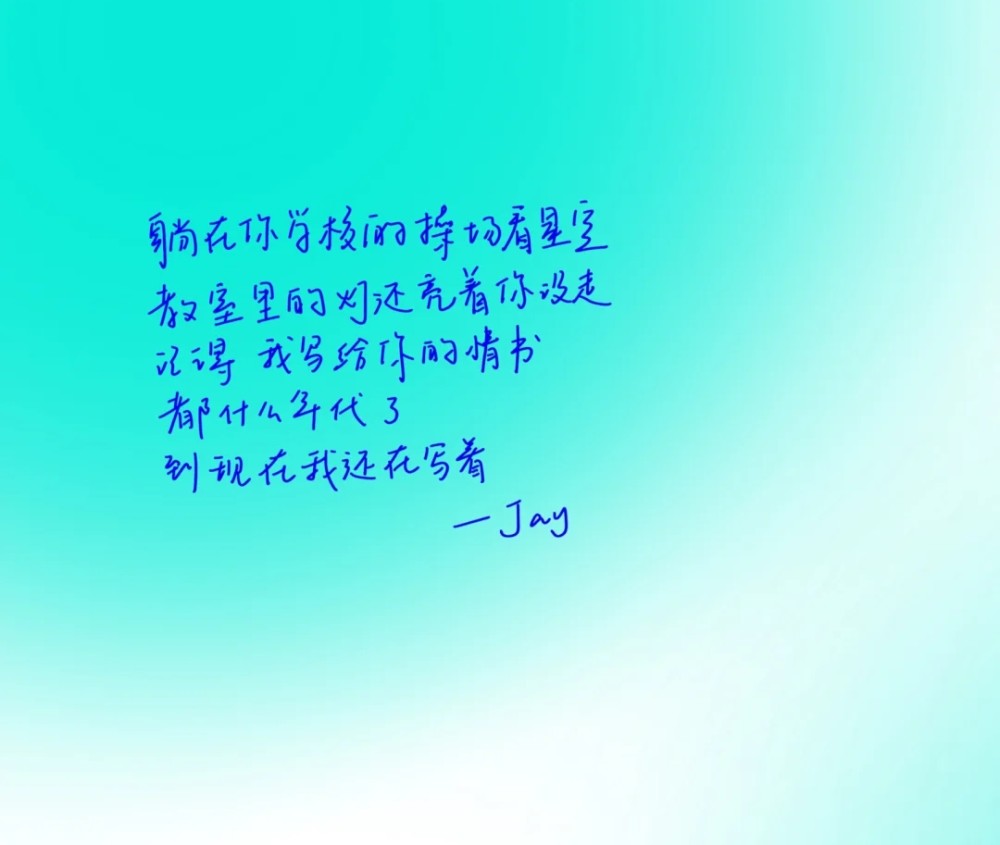 躺在你学校的操场看星空
教室里的灯还亮着你没走
记得 我写给你的情书
都什么年代了
到现在我还在写着
—Jay